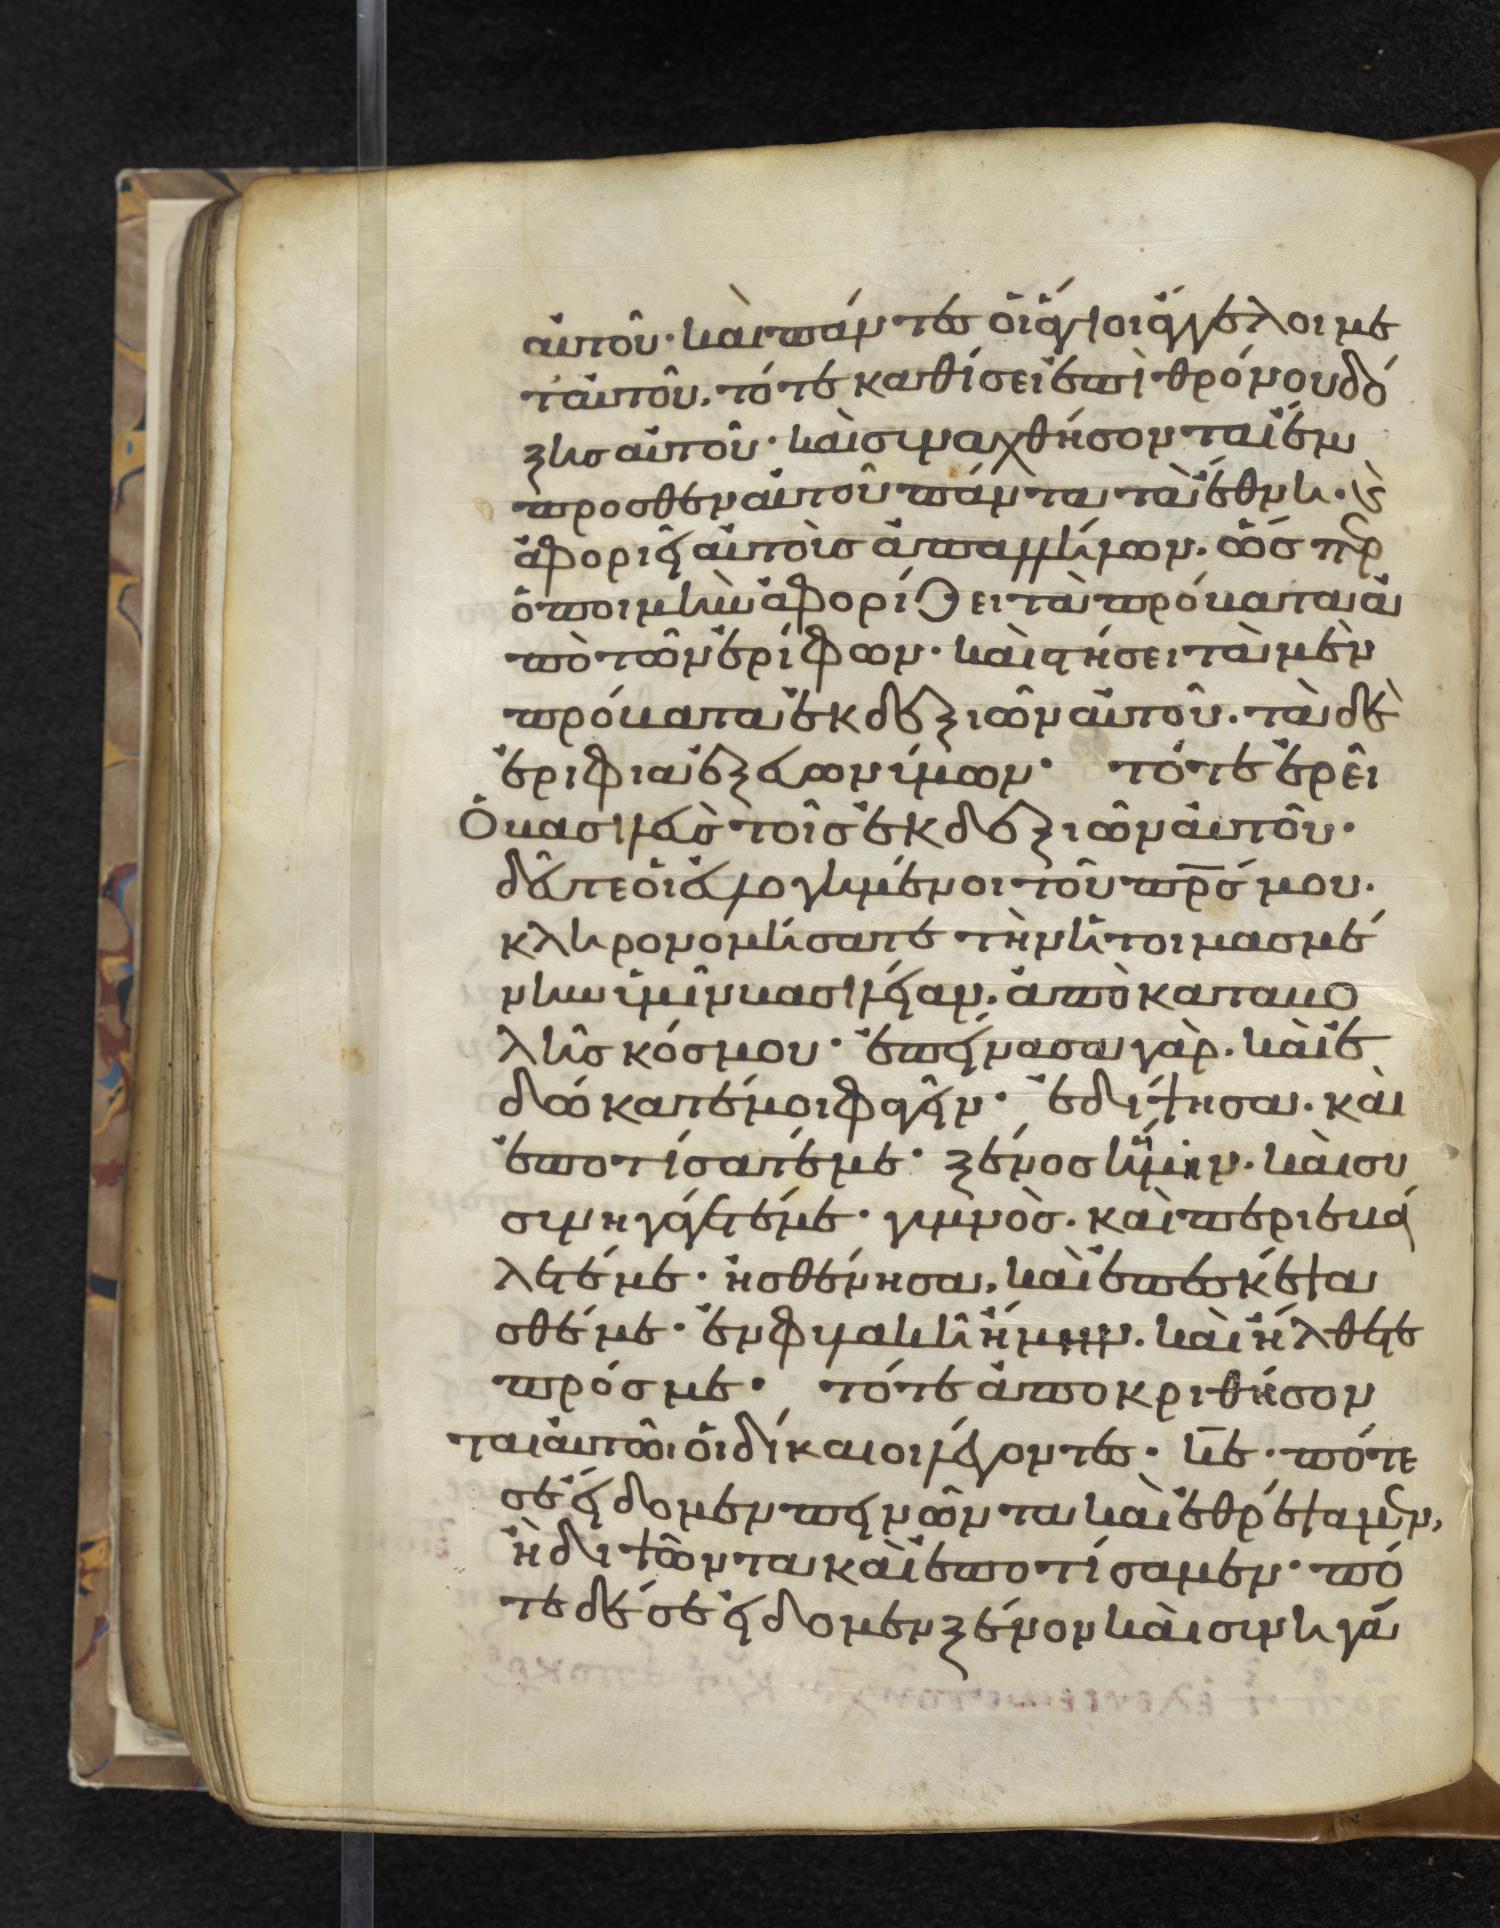 αὐτοῦ· καὶ πάντες οἱ ἅγιοι ἄγγελοι με
τ' αὐτοῦ. τότε καθίσει ἐπὶ θρόνου δό
ξης αὐτοῦ· καὶ συναχθήσονται ἔμ
προσθεν αὐτοῦ πάντα τὰ ἔθνη· ϗ
ἀφοριεῖ αὐτοὺς ἀπ' ἀλλήλων. ὥσπερ
ὁ ποιμὴν ἀφορίζει τὰ πρόβατα ἀ
πὸ τῶν ἐρίφων· καὶ στήσει τὰ μὲν
πρόβατα ἐκ δεξιῶν αὐτοῦ. τὰ δὲ
ἐρίφια ἐξ εὐωνύμων· τότε ἐρεῖ
ὁ βασιλεὺς τοῖς ἐκ δεξιῶν αὐτοῦ·
δεῦτε οἱ εὐλογημένοι τοῦ πρς μου.
κληρονομήσατε τὴν ἡτοιμασμέ
νην ὑμῖν βασιλείαν. ἀπὸ καταβο
λῆς κόσμου· ἐπείνασα γὰρ. καὶ ἐ
δώκατέ μοι φαγεῖν· ἐδίψησα. καὶ
ἐποτίσατέ με· ξένος ἤμην. καὶ συ
νηγάγετέ με· γυμνὸς. καὶ περιεβά
λετέ με· ἠσθένησα, καὶ ἐπεσκέψα
σθέ με· ἐν φυλακῆ ἤμην. καὶ ἤλθετε
πρός με· τότε ἀποκριθήσον
ται αὐτῶ οἱ δίκαιοι λέγοντες· κε· πότε
σε εἴδομεν πεινῶντα καὶ ἐθρέψαμεν,
ἢ διψῶντα καὶ ἐποτίσαμεν· πό
τε δέ σε εἴδομεν ξένον καὶ συνηγά